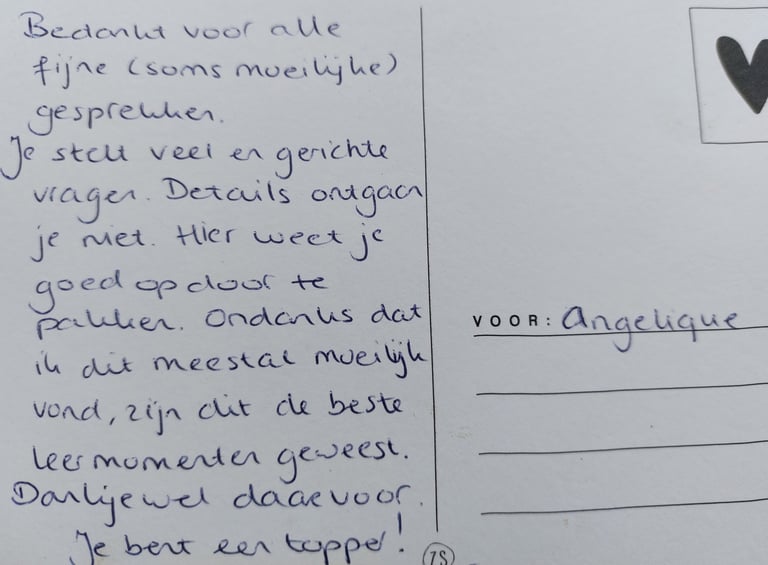 Bedankt voor alle
fijne (soms moeilijke)
gesprekken.
Je stelt veel en gerichte
vragen. Details ontgaan
je niet. Hier weet je
goed op door te
pakken. Ondanks dat
ik dit meestal moeilijk
vond, zijn dit de beste
leermomenten geweest.
Dankjewel daarvoor.
Je bent een topper!
VOOR: Angelique